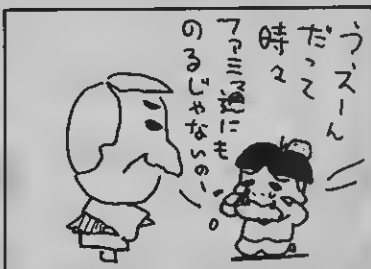 うえーん
だって
時々
ファミ通にも
のるじゃないのー